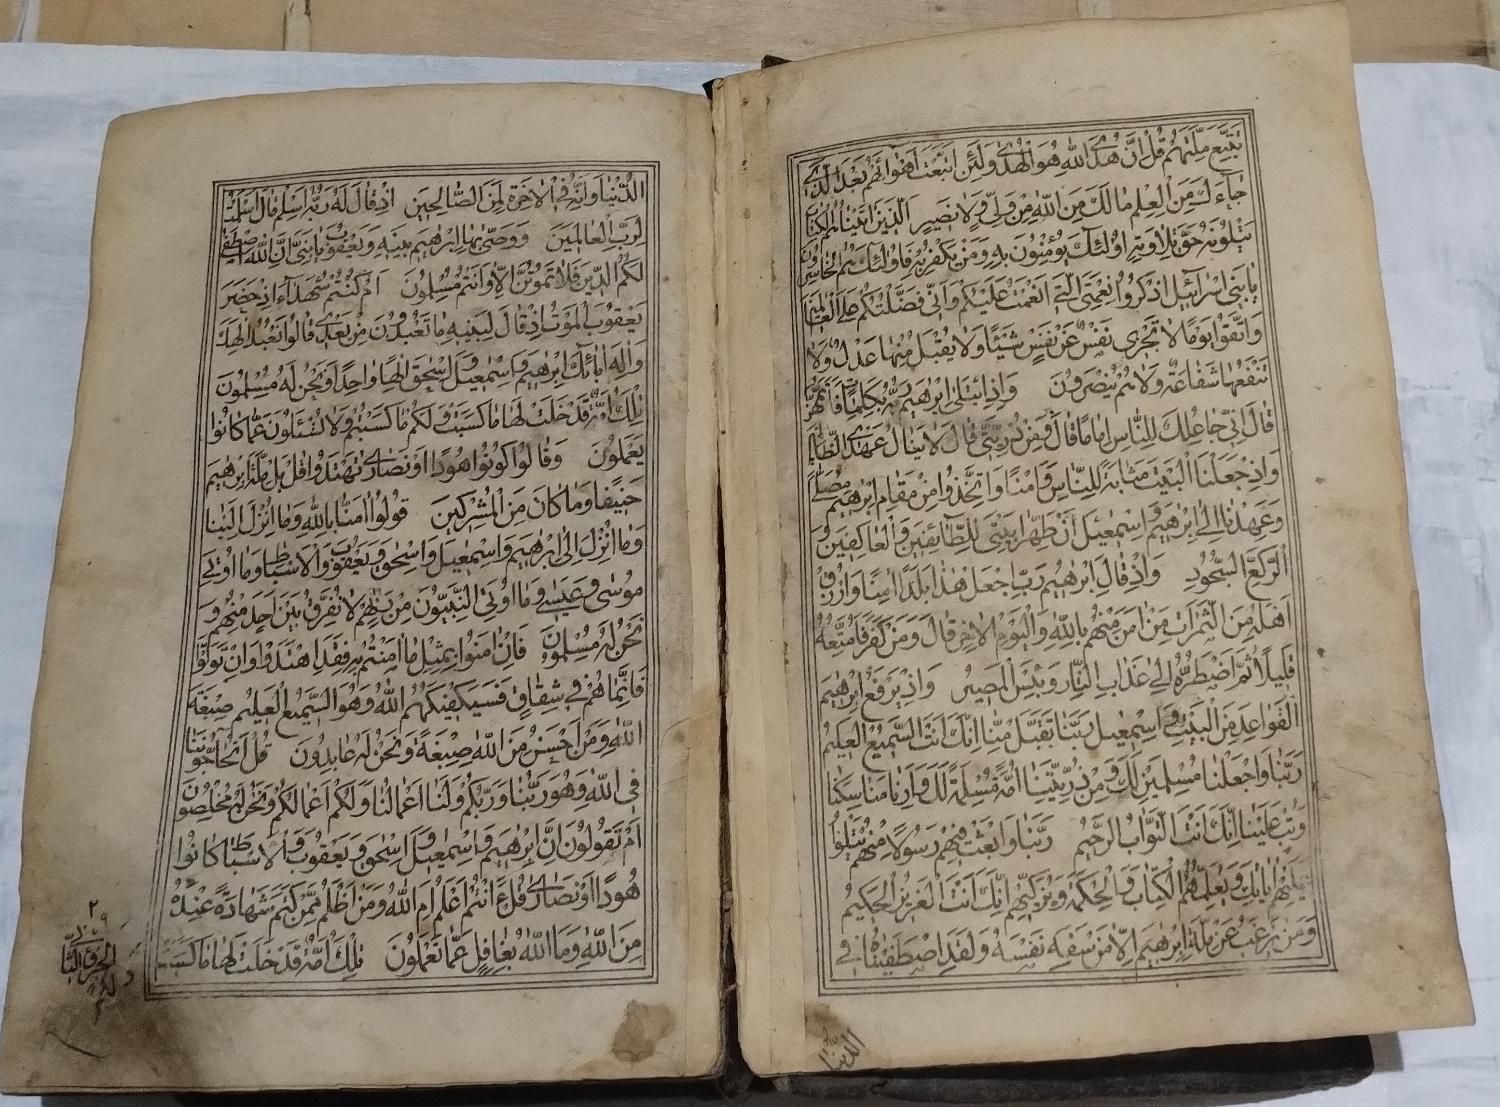 تتبع ملتهم قل ان هدى الله هو الهدى ولئن اتبعت اهوائهم بعد الذي
جاءك من العلم مالك من الله من ولي ولا نصير الذين اتيناهم الكتاب
يتلونه حق تلاوته اولئك يؤمنون به ومن يكفر به فاولئك هم الخاسرون
يا بني اسرائيل اذكروا نعمتي التي انعمت عليكم واني فضلتكم على العالمين
واتقوا يوما لا تجزي نفس عن نفس شيئا ولا يقبل منها عدل ولا
تنفعها شفاعة ولا هم ينصرون واذ ابتلى ابرهيم ربه بكلمات فاتمهن
قال اني جاعلك للناس اماما قال ومن ذريتي قال لا ينال عهدي الظالمين
واذ جعلنا البيت مثابة للناس وامنا واتخذوا من مقام ابرهيم مصلى
وعهدنا الى ابرهيم واسمعيل ان طهرا بيتي للطائفين والعاكفين و
الركع السجود واذ قال ابرهيم رب اجعل هذا بلدا امنا وارزق
اهله من الثمرات من امن منهم بالله واليوم الاخر قال ومن كفر فامتعه
قليلا ثم اضطره الى عذاب النار وبئس المصير واذ يرفع ابرهيم
القواعد من البيت واسمعيل ربنا تقبل منا انك انت السميع العليم
ربنا واجعلنا مسلمين لك ومن ذريتنا امة مسلمة لك وارنا مناسكنا
وتب علينا انك انت التواب الرحيم ربنا وابعث فيهم رسولا منهم يتلوا
عليهم اياتك ويعلمهم الكتاب والحكمة ويزكيهم انك انت العزيز الحكيم
ومن يرغب عن ملة ابرهيم الا من سفه نفسه ولقد اصطفيناه في
الدنيا
الدنيا وانه في الاخرة لمن الصالحين اذ قال له ربه اسلم قال اسلمت
لرب العالمين ووصى بها ابرهيم بنيه ويعقوب يا بني ان الله اصطفى
لكم الدين فلا تموتن الا وانتم مسلمون ام كنتم شهداء اذ حضر
يعقوب الموت اذ قال لبنيه ما تعبدون من بعدي قالوا نعبد الهك
واله ابائك ابرهيم واسمعيل واسحق الها واحدا ونحن له مسلمون
تلك امة قد خلت لها ما كسبت ولكم ما كسبتم ولا تسئلون عما كانوا
يعملون وقالوا كونوا هودا او نصارى تهتدوا قل بل ملة ابرهيم
حنيفا وما كان من المشركين قولوا امنا بالله وما انزل الينا
وما انزل الى ابرهيم واسمعيل واسحق ويعقوب والاسباط وما اوتي
موسى وعيسى وما اوتي النبيون من ربهم لا نفرق بين احد منهم و
نحن له مسلمون فان امنوا بمثل ما امنتم به فقد اهتدوا وان تولوا
فانما هم في شقاق فسيكفيكهم الله وهو السميع العليم صبغة
الله ومن احسن من الله صبغة ونحن له عابدون قل اتحاجوننا
في الله وهو ربنا وربكم ولنا اعمالنا ولكم اعمالكم ونحن له مخلصون
ام تقولون ان ابرهيم واسمعيل واسحق ويعقوب والاسباط كانوا
هودا او نصارى قل ءانتم اعلم ام الله ومن اظلم ممن كتم شهادة عنده
من الله وما الله بغافل عما تعملون تلك امة قد خلت لها ما كسبت
٢